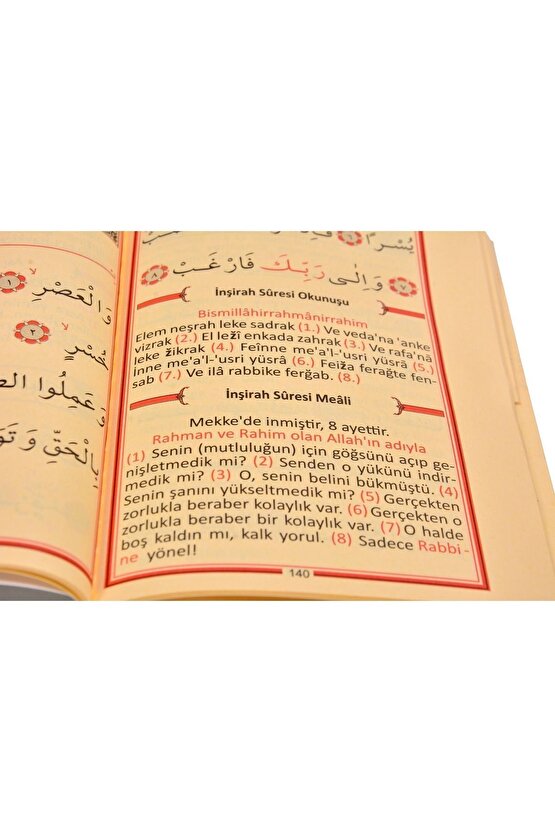 وَالْعَصْرِ ١
خُسْرٍ ٢
وَعَمِلُوا
بِالْحَقِّ
يُسْرًا ٦
٧ وَاِلٰى رَبِّكَ فَارْغَبْ ٨
İnşirah Sûresi Okunuşu
Bismillâhirrahmânirrahim
Elem neşrah leke sadrak (1.) Ve veda'na 'anke
vizrak (2.) El leżî enkada zahrak (3.) Ve rafa'nâ
leke żikrak (4.) Feînne me'a'l-'usri yüsrâ (5.)
İnne me'a'l-'usri yüsrâ (6.) Feiża ferağte fen-
sab (7.) Ve ilâ rabbike ferğab. (8.)
İnşirah Sûresi Meâli
Mekke'de inmiştir, 8 ayettir.
Rahman ve Rahim olan Allah'ın adıyla
(1) Senin (mutluluğun) için göğsünü açıp ge-
nişletmedik mi? (2) Senden o yükünü indir-
medik mi? (3) O, senin belini bükmüştü. (4)
Senin şanını yükseltmedik mi? (5) Gerçekten
zorlukla beraber kolaylık var. (6) Gerçekten o
zorlukla beraber bir kolaylık var. (7) O halde
boş kaldın mı, kalk yorul. (8) Sadece Rabbi-
ne yönel!
140